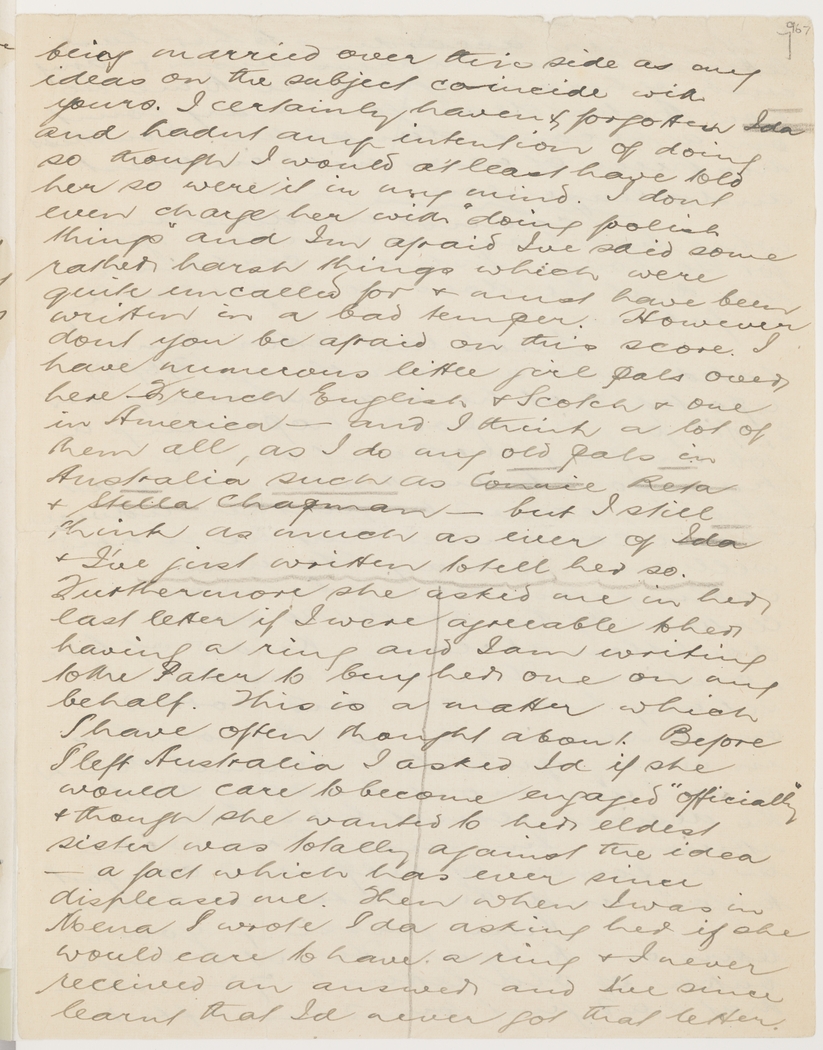 967
being married over this side as my
ideas on the subject coincide with
yours. I certainly havent forgotten Ida
and hadnt any intention of doing
so though I would at least have told
her so were it in my mind. I dont
even charge her with "doing foolish
things" and Im afraid Ive said some
rather harsh things which were
quite uncalled for & must have been
written in a bad temper. However
dont you be afraid on this score. I
have numerous little girl pals over
here — French English & Scotch & one
in America — and I think a lot of
them all, as I do my old pals in
Australia such as Connie Reta
& Stella Chapman — but I still
think as much as ever of Ida
& I've just written to tell her so.
Furthermore she asked me in her
last letter if I were agreeable to her
having a ring and I am writing
to the Pater to buy her one on my
behalf. This is a matter which
I have often thought about. Before
I left Australia I asked Id if she
would care to become engaged "officially"
& though she wanted to her eldest
sister was totally against the idea
— a fact which has ever since
displeased me. Then when I was in
Mena I wrote Ida asking her if she
would care to have a ring & I never
received an answer and Ive since
learnt that Id never got that letter.